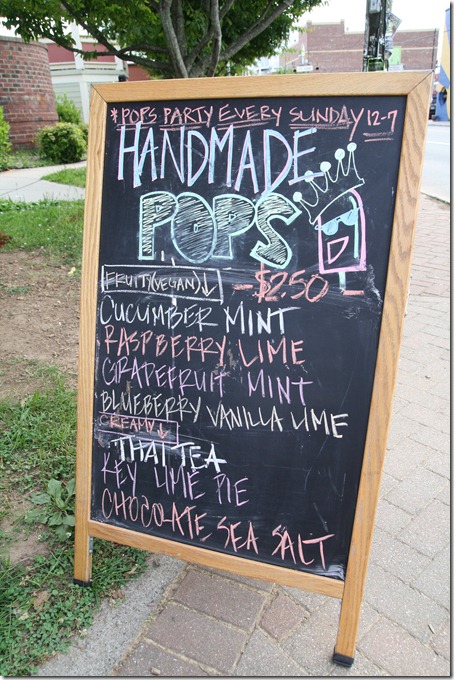 *POPS PARTY EVERY SUNDAY 12-7
HANDMADE
POPS
FRUITY(VEGAN)↓
-$2.50-
CUCUMBER MINT
RASPBERRY LIME
GRAPEFRUIT MINT
BLUEBERRY VANILLA LIME
CREAMY↓
THAI TEA
KEY LIME PIE
CHOCOLATE SEA SALT